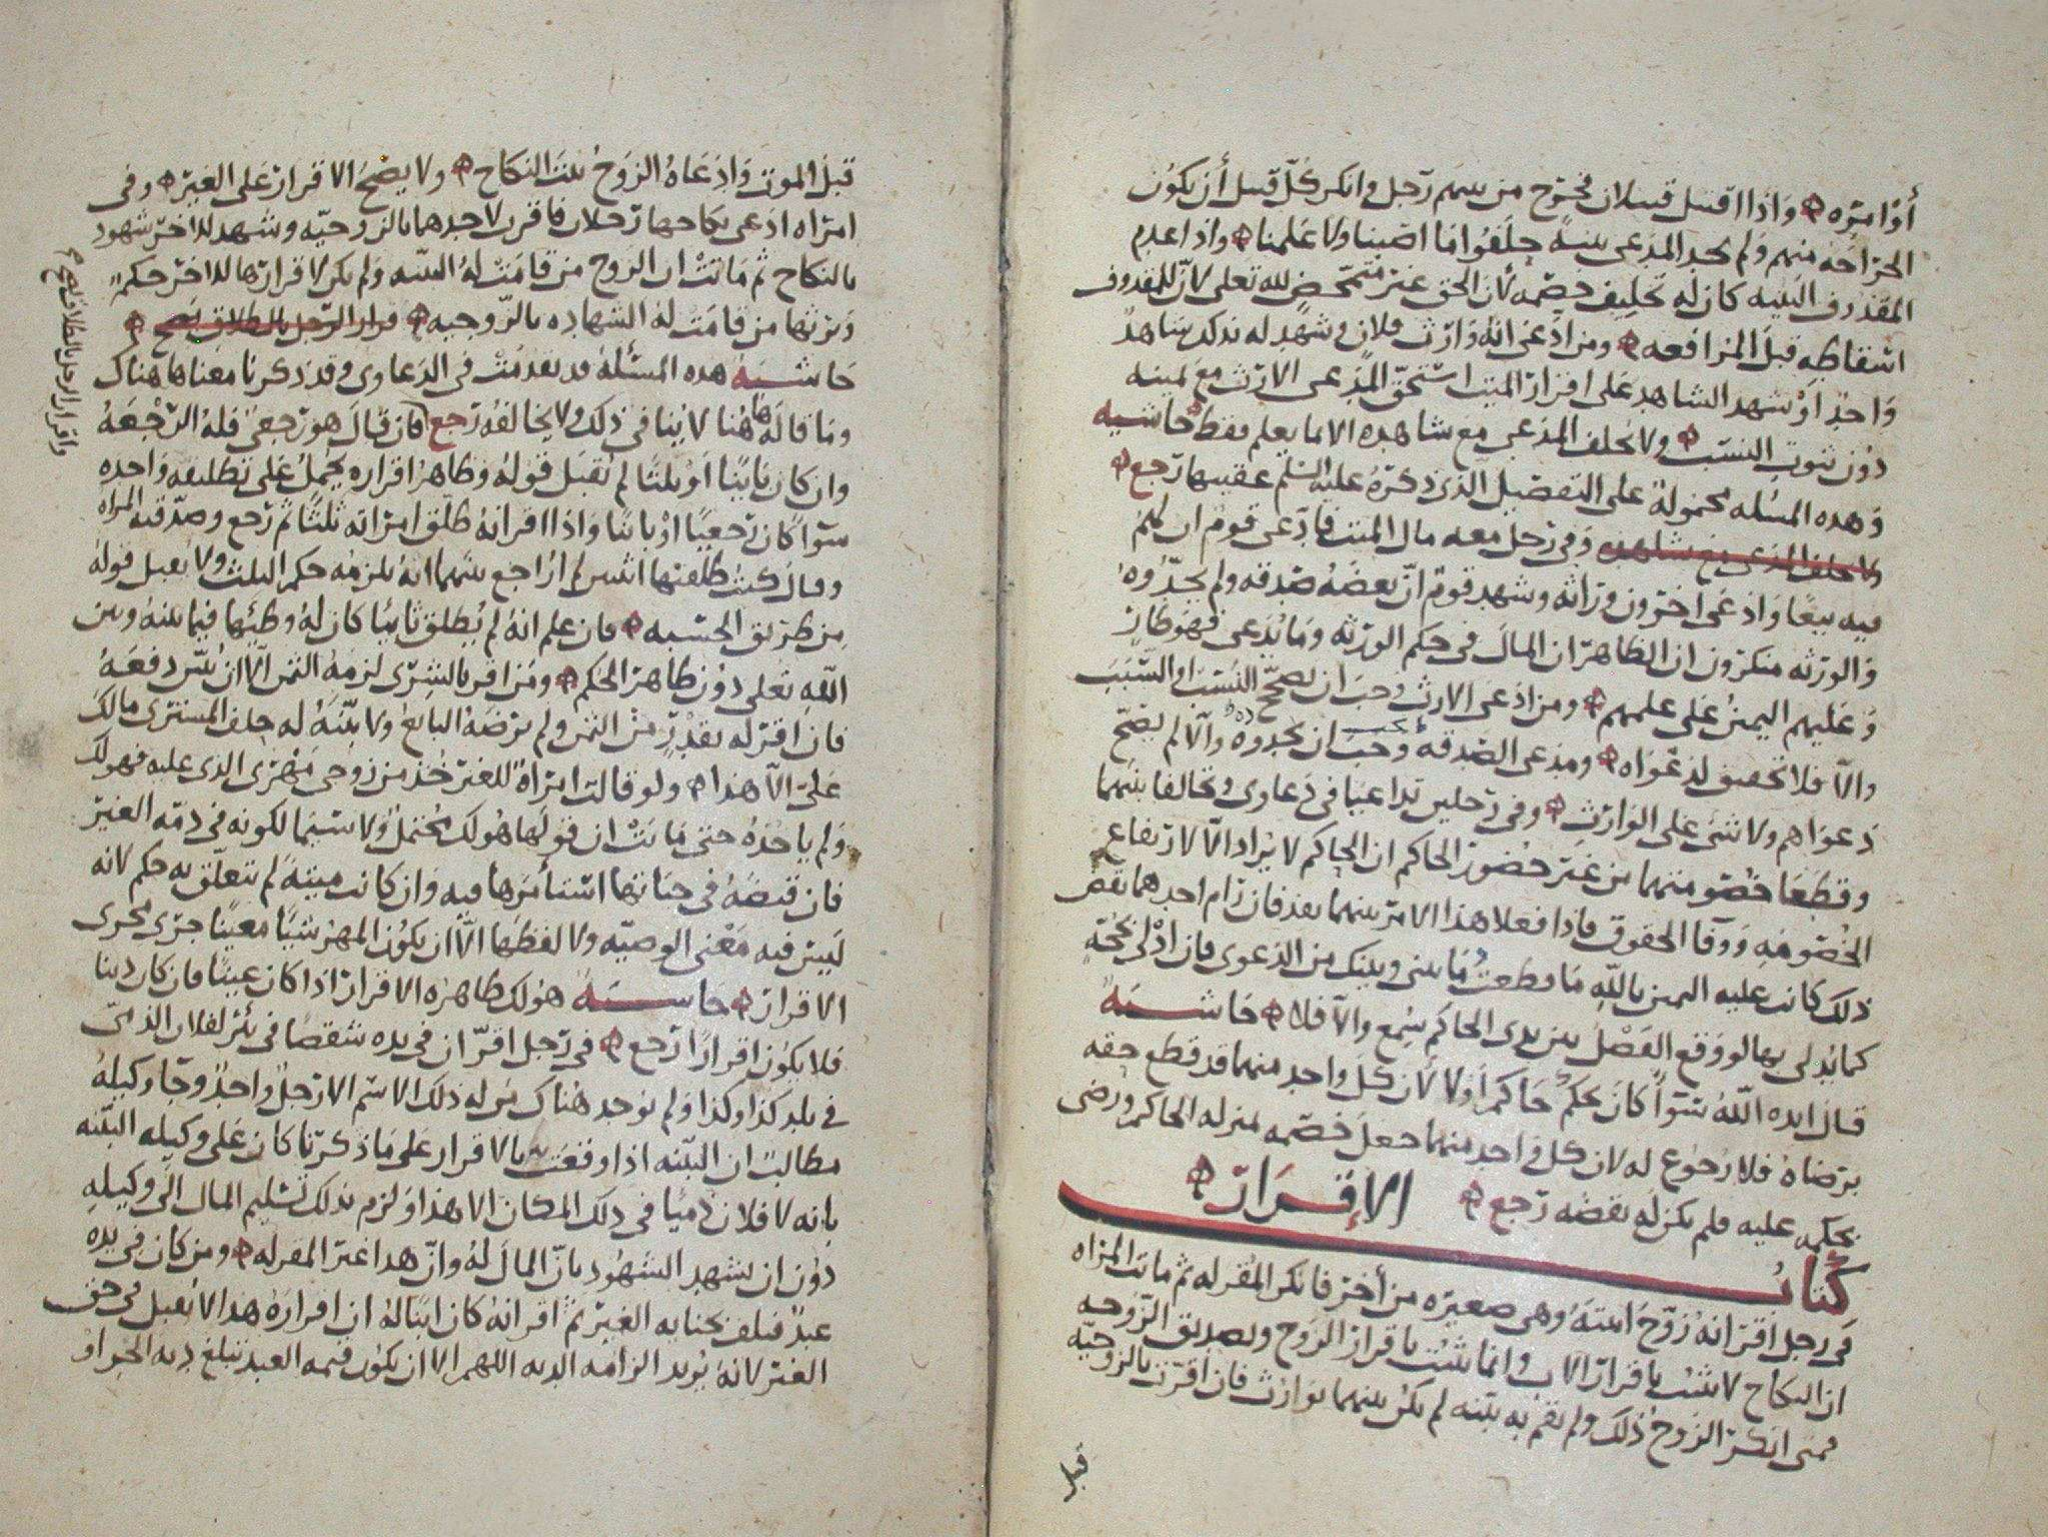 أو امرته ۞ واذا اقتتل قبيلان فخرج من بينهم رجل وانكر كل قبيل أن يكون
الجراحة منهم ولم يجد المدعي بينة حلفوا ما اصبنا ولا علمنا ۞ واذا عدم
المقذوف البينه كان له تحليف خصمه لأن الحق غير متمحض لله تعلى لأن للمقذوف
اسقاطه قبل المرافعه ۞ ومن ادعى انه وارث فلان وشهد له بذلك شاهد
واحد او شهد الشاهد على اقرار الميت استحق المدعي الارث مع يمينه
دون ثبوت النسب ۞ ولا يحلف المدعي مع شاهده الا بما يعلم فقط حاشيه
وهذه المسئله محمولة على التفصيل الذي ذكره عليه السلم عقيبها رجع ۞
وفي رجل معه مال الميت فادعى قوم ان لهم
فيه بيعا وادعى اخرون وراثه وشهد قوم ان بعضه صدقه ولم يحدوه
والورثه منكرون ان الظاهر ان المال في حكم الورثه وما يدعى فهو طار
وعليهم اليمين على علمهم ۞ ومن ادعى الارث وجب ان يصحح النسب او السبب
والا فلا تحقيق لدعواه ۞ ومدعي الصدقه وجب ان يحدوه والا لم يصح
دعواهم ولا شي على الوارث ۞ وفي رجلين تداعيا في دعاوى وتحالفا بينهما
وقطعا خصومتهما من غير حضور الحاكم ان الحاكم لا يراد الا لارتفاع
الخصومه ووفا الحقوق فاذا فعلا هذا الامر بينهما نفذ فان رام احدهما نقض
ذلك كانت عليه اليمين بالله ما قطعت ما بيني وبينك من الدعوى فان ادلى بحجة
كما يدلى بها لو وقع الفصل بين يدي الحاكم سمع والا فلا ۞ حاشيه
قال ايده الله سوا كان محكم حاكم او لا لأن كل واحد منهما قد قطع حقه
برضاه فلا رجوع له لان كل واحد منهما جعل خصمه بمنزله الحاكم ورضي
بحكمه عليه فلم يكن له نقضه رجع ۞ الإقرار ۞
كتاب
في رجل اقر انه زوج ابنته وهي صغيره من أخر فانكر المقر له ثم ماتت المراه
ان النكاح لا يثبت باقرار الاب وانما يثبت باقرار الزوج وتصديق الزوجه
فمتى انكر الزوج ذلك ولم تقم به بينه لم يكن بينهما توارث فان اقرت بالزوجيه
قبل
قبل الموت وادعاه الزوج ثبت النكاح ۞ ولا يصح الاقرار على الغير ۞ وفي
امراه ادعى نكاحها رجلان فاقرت لاحدهما بالزوجيه وشهد للاخر شهود
بالنكاح ثم ماتت ان الزوج من قامت له البينه ولم يكن لاقرارها للاخر حكم
ويرثها من قامت له الشهاده بالزوجيه ۞ اقرار الرجل بالطلاق يصح ۞
حاشيه هذه المسئله قد تقدمت في الدعاوى وقد ذكرنا معناها هناك
وما قاله ها هنا لا ينافي ذلك ولا يخالفه رجع فان قال هو رجعي فله الرجعه
وان كان بائنا او ثلثا لم تقبل قوله وظاهر اقراره يحمل على تطليقه واحده
سوا كان رجعيا او بائنا واذا اقر انه طلق امراته ثلثا ثم رجع وصدقته المراه
وقال كنت طلقتها اثنين لم اراجع بينهما انه يلزمه حكم الثلث ولا يقبل قوله
من طريق الحسبه ۞ فان علم انه لم يطلق ثانيا كان له وطئها فيما بينه وبين
الله تعلى دون ظاهر الحكم ۞ ومن اقر بالشرى لزمه الثمن الا ان يبين دفعه
فان اقر له بقدر من الثمن ولم يرضه البايع ولا بينة له حلف المشتري مالك
علي الا هذا ۞ ولو قالت امراة للغير خذ من زوجي مهري الذي عليه فهو لك
ولم ياخذه حتى ماتت ان قولها هو لك محتمل ولا سيما لكونه في ذمه الغير
فان قبضه في حياتها استأمرها فيه وان كانت ميتة لم تتعلق به حكم لانه
ليس فيه معنى الوصيه ولا لفظها الا ان يكون المهر شيا معينا جرى مجرى
الاقرار ۞ حاشيه هو لك ظاهره الاقرار اذا كان عينا فان كان دينا
فلا يكون اقرارا رجع ۞ في رجل اقر ان في يده شقصا في بئر لفلان الذمي
في بلد كذا وكذا ولم يوجد هناك من له ذلك الاسم الا رجل واحد وجا وكيله
مطالبا ان البينه اذا وقعت بالاقرار على ما ذكرنا كان على وكيله البينه
بانه لا فلان ذميا في ذلك المكان الا هذا ولزم بذلك تسليم المال الى وكيله
دون ان يشهد الشهود بان المال له وان هذا عين المقر له ۞ ومن كان في يده
عبد فتلف بجنايه الغير ثم اقر انه كان ابنا له ان اقراره هذا لا يقبل في حق
الغير لانه يريد الزامه الديه اللهم الا ان يكون قيمه العبد تبلغ ديه الحر او
واقرار الرجل بالطلاق يصح